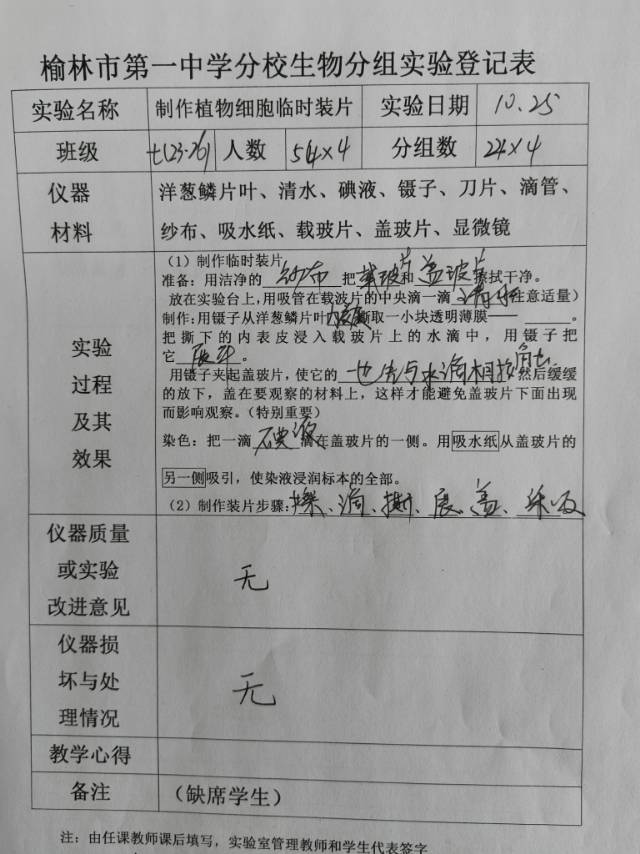 榆林市第一中学分校生物分组实验登记表
实验名称 制作植物细胞临时装片 实验日期 10.25
班级 七(23-26) 人数 54×4 分组数 24×4
仪器 洋葱鳞片叶、清水、碘液、镊子、刀片、滴管、
材料 纱布、吸水纸、载玻片、盖玻片、显微镜
实验过程及其效果
(1)制作临时装片
准备:用洁净的 纱布 把 载玻片 和 盖玻片 擦拭干净。
放在实验台上,用吸管在载波片的中央滴一滴 清水 (注意适量)
制作:用镊子从洋葱鳞片叶 撕取一小块透明薄膜—— 。
把撕下的内表皮浸入载玻片上的水滴中,用镊子把
它 展平 。
用镊子夹起盖玻片,使它的 一边先与水滴相接触 然后缓缓
的放下,盖在要观察的材料上,这样才能避免盖玻片下面出现
而影响观察。(特别重要)
染色:把一滴 碘液 滴在盖玻片的一侧。用吸水纸从盖玻片的
另一侧吸引,使染液浸润标本的全部。
(2)制作装片步骤: 擦、滴、撕、展、盖、染、吸
仪器质量
或实验
改进意见
无
仪器损
坏与处
理情况
无
教学心得
备注 (缺席学生)
注:由任课教师课后填写,实验室管理教师和学生代表签字